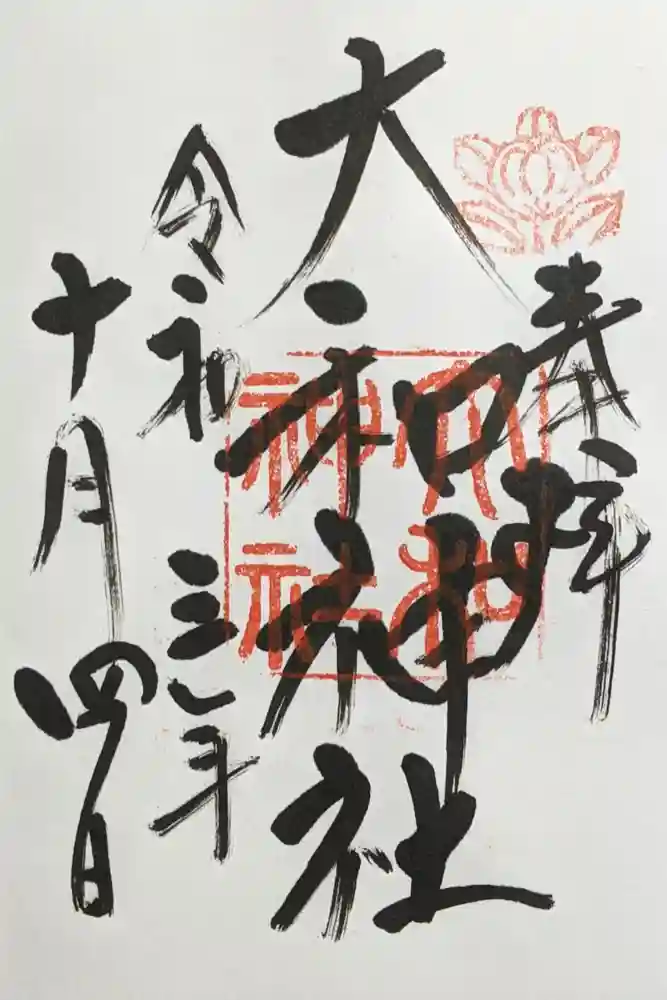 奉拝
大和神社
大和神社
令和三年
十月四日